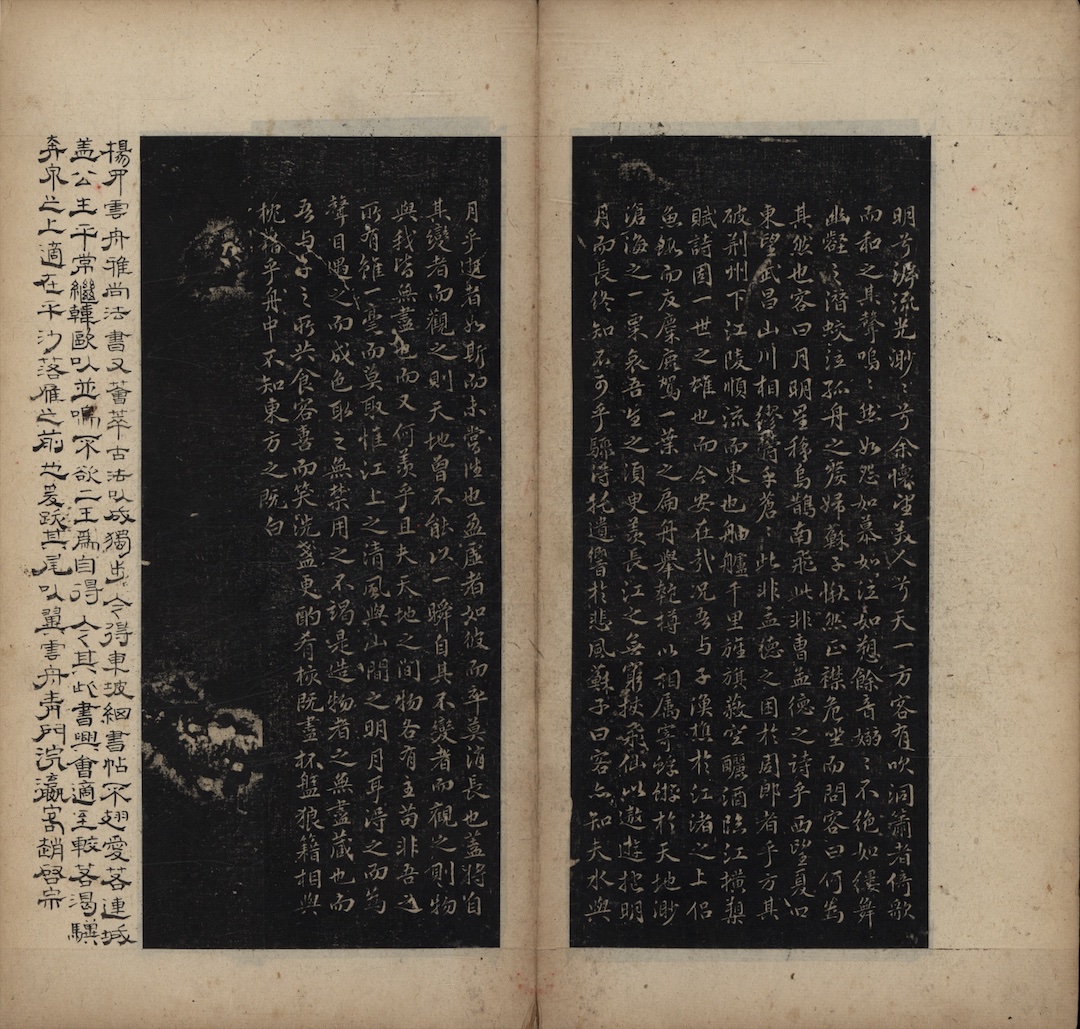 明兮泝流光渺〻兮余懷望美人兮天一方客有吹洞簫者倚歌
而和之其聲嗚〻然如怨如慕如泣如愬餘音嫋〻不絕如縷舞
幽壑之潛蛟泣孤舟之嫠婦蘇子愀然正襟危坐而問客曰何為
其然也客曰月明星稀烏鵲南飛此非曹孟德之詩乎西望夏口
東望武昌山川相繆鬱乎蒼〻此非孟德之困於周郎者乎方其
破荊州下江陵順流而東也舳艫千里旌旗蔽空釃酒臨江橫槊
賦詩固一世之雄也而今安在哉況吾与子漁樵於江渚之上侶
魚鰕而友麋鹿駕一葉之扁舟舉匏樽以相属寄蜉蝣於天地渺
滄海之一粟哀吾生之須臾羨長江之無窮挾飛仙以遨遊抱明
月而長終知不可乎驟得托遺響於悲風蘇子曰客亦知夫水與
月乎逝者如斯而未嘗往也盈虛者如彼而卒莫消長也蓋將自
其變者而觀之則天地曾不能以一瞬自其不變者而觀之則物
與我皆無盡也而又何羨乎且夫天地之間物各有主苟非吾之
所有雖一毫而莫取惟江上之清風與山間之明月耳得之而為
聲目遇之而成色取之無禁用之不竭是造物者之無盡藏也而
吾与子之所共食客喜而笑洗盞更酌肴核既盡杯盤狼籍相與
枕藉乎舟中不知東方之既白
楊雲舟雅尚法書又薈萃古法以成獨步今得東坡細書帖不翅愛若連城
蓋公生平常繼韓歐以並鳴不欲二王為自得今其此書興會適至較若渴驥
奔泉之上適在平沙落雁之前也爰跋其尾以翼雲舟青門浣瀛客趙啓宗